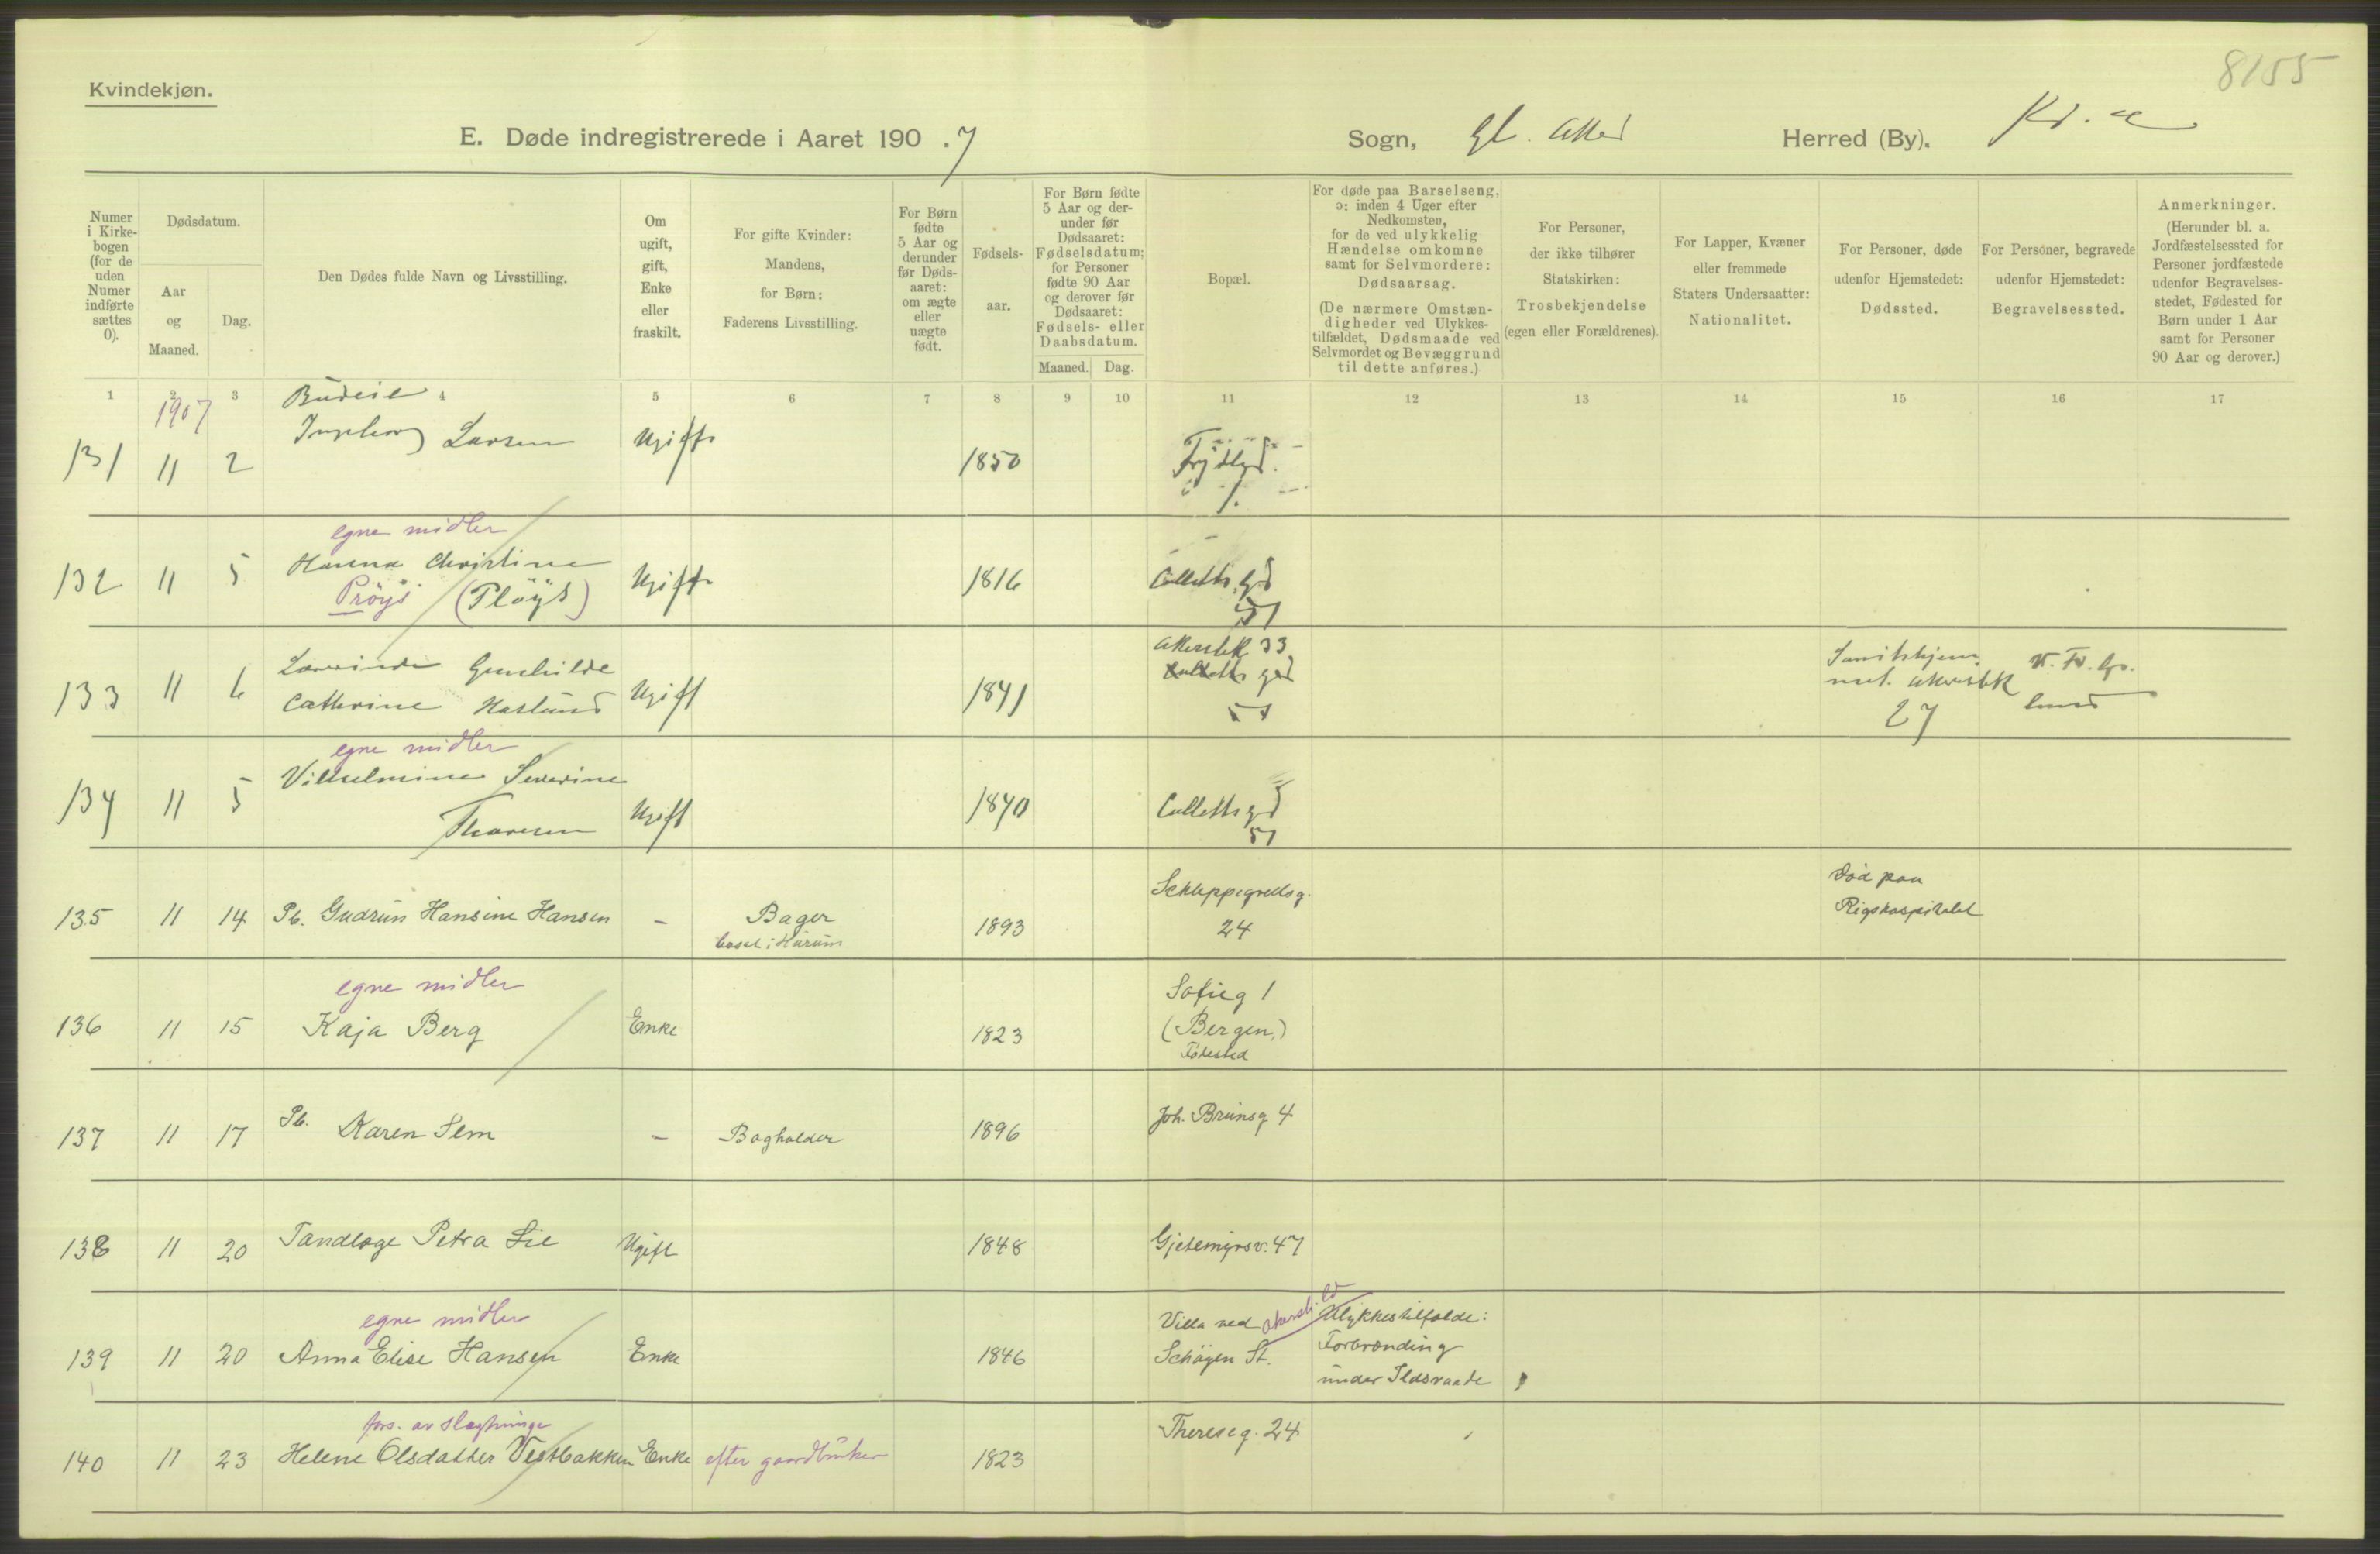 8155
Kvindekjøn.
E. Døde indregistrerede i Aaret 190.7 Sogn, Gl. Aker Herred (By). Kr.a
Numer i Kirke-bogen (for de uden Numer indførte sættes 0).
Dødsdatum.
Aar og Maaned.
Dag.
Den Dødes fulde Navn og Livsstilling.
Om ugift, gift, Enke eller fraskilt.
For gifte Kvinder: Mandens, for Børn: Faderens Livsstilling.
For Børn fødte 5 Aar og derunder før Døds-aaret: om ægte eller uægte født.
Fødsels-aar.
For Børn fødte 5 Aar og der-under før Dødsaaret: Fødselsdatum; for Personer fødte 90 Aar og derover før Dødsaaret: Fødsels- eller Daabsdatum.
Maaned. Dag.
Bopæl.
For døde paa Barselseng, ɔ: inden 4 Uger efter Nedkomsten, for de ved ulykkelig Hændelse omkomne samt for Selvmordere: Dødsaarsag.
(De nærmere Omstæn-digheder ved Ulykkes-tilfældet, Dødsmaade ved Selvmordet og Bevæggrund til dette anføres.)
For Personer, der ikke tilhører Statskirken: Trosbekjendelse (egen eller Forældrenes).
For Lapper, Kvæner eller fremmede Staters Undersaatter: Nationalitet.
For Personer, døde udenfor Hjemstedet: Dødssted.
For Personer, begravede udenfor Hjemstedet: Begravelsessted.
Anmerkninger. (Herunder bl. a. Jordfæstelsessted for Personer jordfæstede udenfor Begravelses-stedet, Fødested for Børn under 1 Aar samt for Personer 90 Aar og derover.)
1 2 3 4 5 6 7 8 9 10 11 12 13 14 15 16 17
1907 Budeie
131 11 2 Ingeborg Larsen Ugift 1850 1.
egne midler
132 11 5 Hanna Christine Ugift 1816 Colletts gd
Pröys (Plöys) 51
133 11 6 Gunhilde Ugift 1841 Akersbk 33
Cathrine Haslund Colletts gd 51
Akersbk 27
egne midler
134 11 5 Vilhelmine Severine Ugift 1840 Colletts gd
Thoresen 51
135 11 14 Pb. Gudrun Hansine Hansen – Bager 1893 Schleppegrellsg. 24 Död paa Rigshospitalet
bosat i Hurum
egne midler
136 11 15 Kaja Berg Enke 1823 Sofieg 1
(Bergen,)
Födested
137 11 17 Pb. Karen Sem – Bogholder 1896 Joh. Brunsg 4
138 11 20 Tandlæge Petra Lie Ugift 1848 Gjetemyrsv. 47
egne midler
139 11 20 Anna Elise Hansen Enke 1846 Villa ved Ulykkestilfælde:
Schøyen St. Forbrænding
under Ildsvaade
fors. av slægtninge
140 11 23 Helene Olsdatter Vestbakken Enke efter gaardbruker 1823 Thereseg. 24